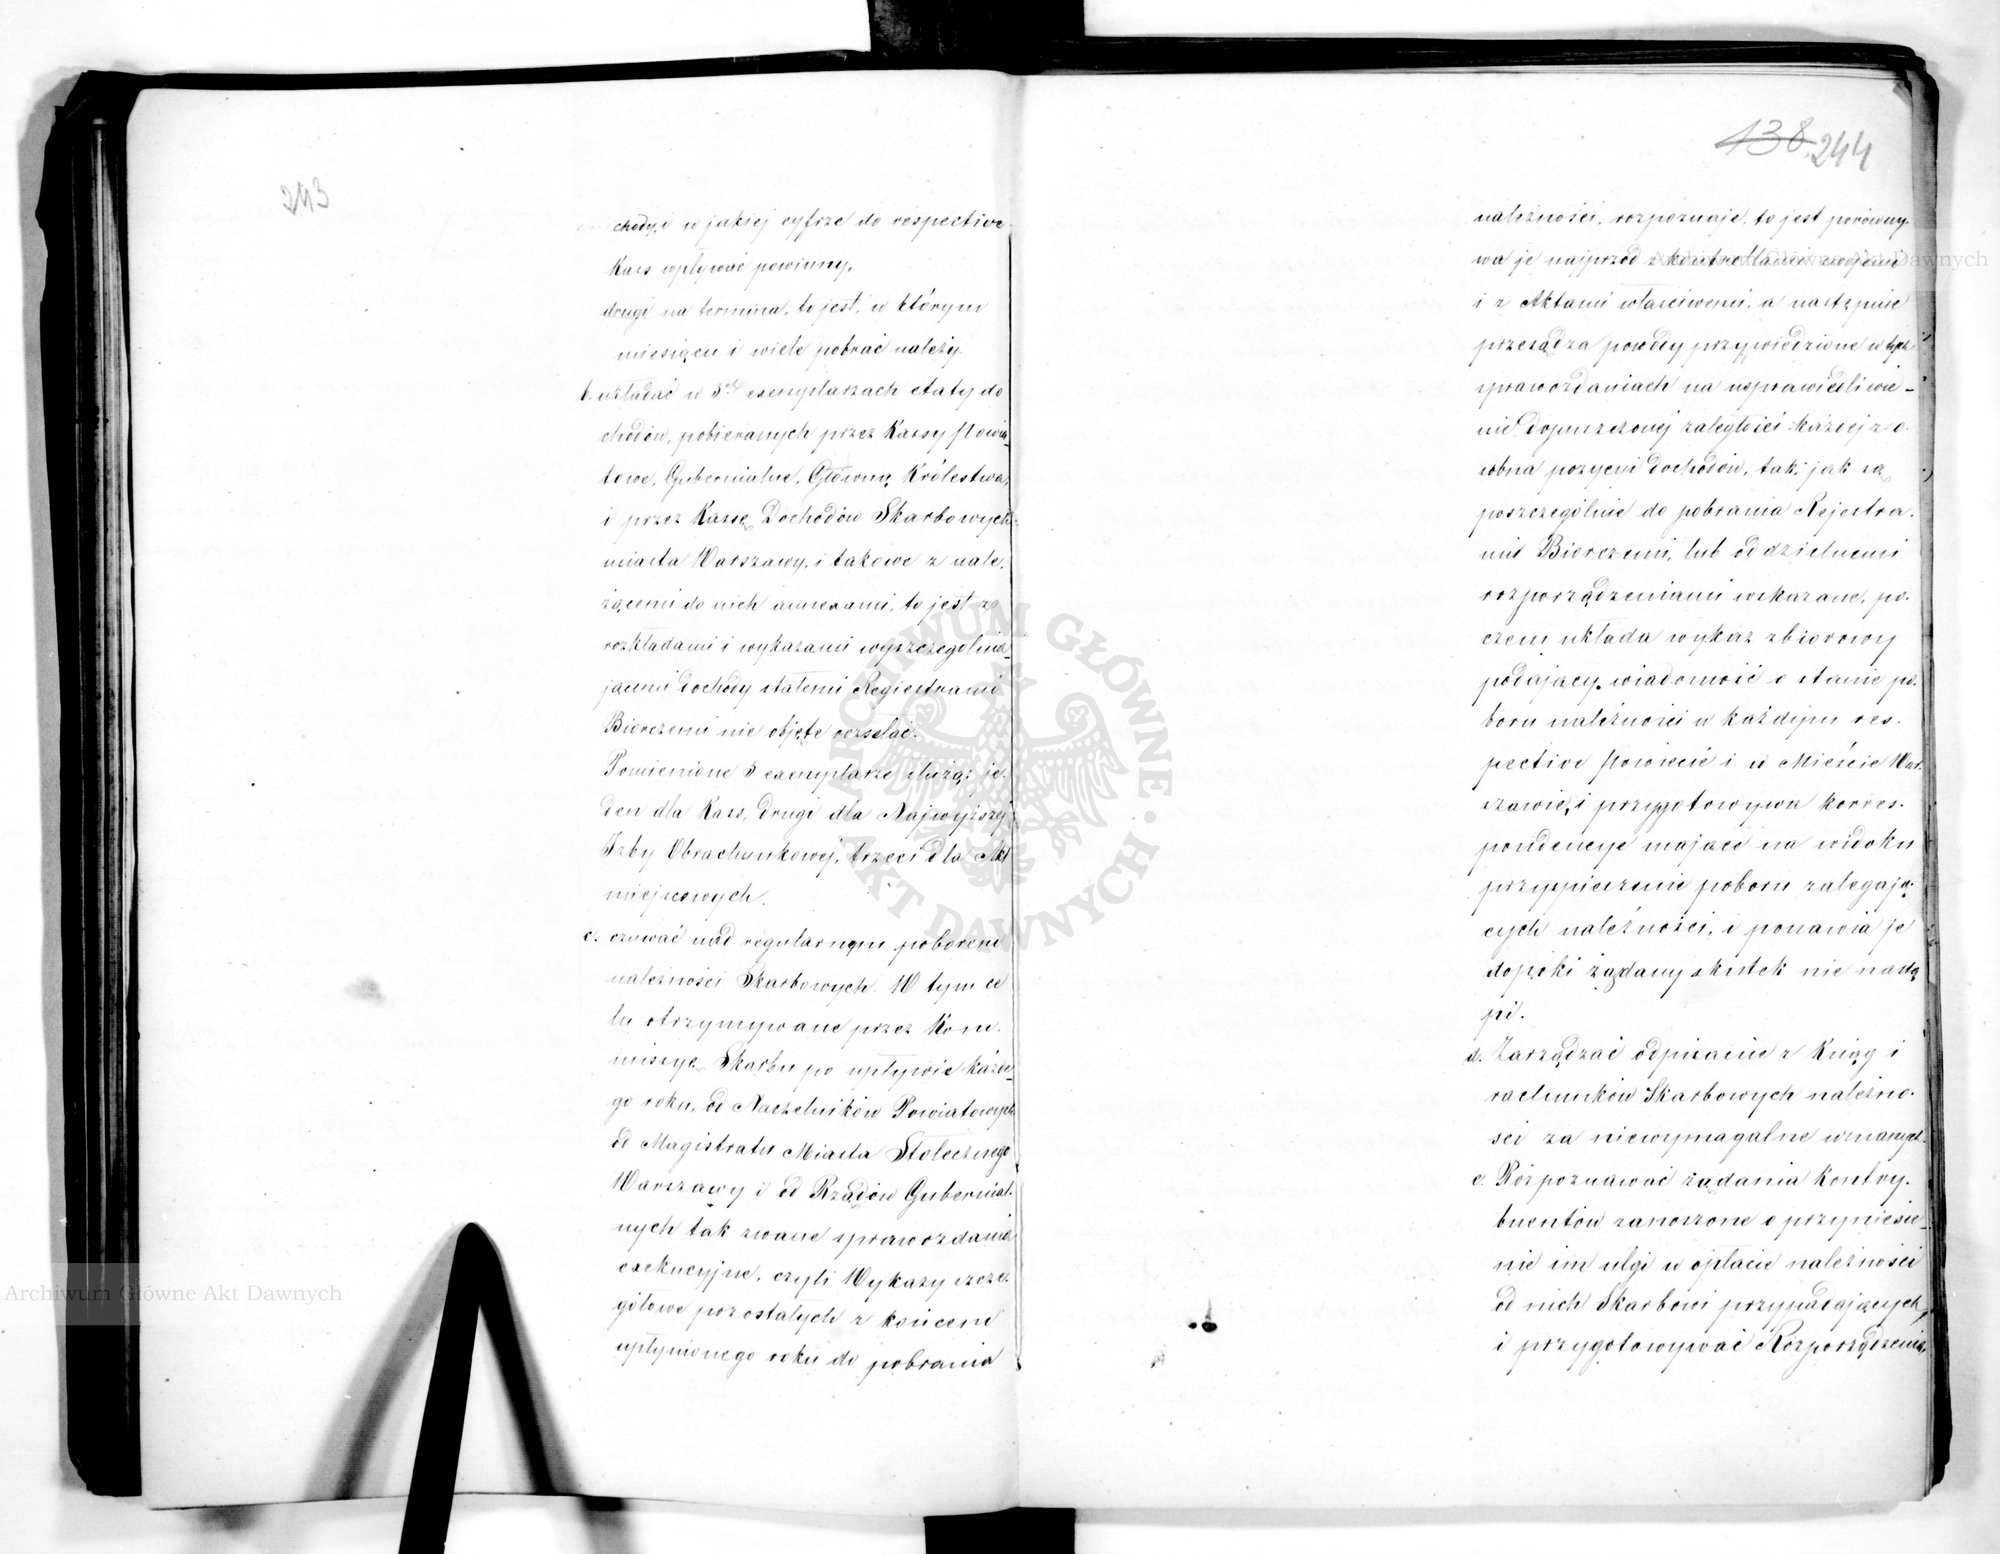 243
chody, i w jakiej cyfrze do respective
Kass wpływać powinny,
drugi na termina, to jest, w którym
miesiącu i wiele pobrać należy.
b. układać w 3ch exemplarzach etaty do
chodów, pobieranych przez Kassy Powia-
towe, Gubernialne, Główną Królestwa,
i przez Kassę Dochodów Skarbowych
miasta Warszawy, i takowe z nale,
żącemi do nich annexami, to jest z
rozkładami i wykazami wyszczególnia-
jącemi dochody stałemi Regiestrami
Biorczemi nie objęte rozsełać.
Pomienione 3 exemplarze służą: je.
den dla Kass, drugi dla Najwyższej
Izby Obrachunkowej, trzeci dla Akt
miejscowych.
c. czuwać nad regularnym poborem
należności Skarbowych. W tym ce
lu otrzymywane przez Kom.
missyę Skarbu po upływie każde-
go roku, od Naczelników Powiatowych
od Magistratu Miasta Stołecznego
Warszawy i od Rządów Gubernial.
nych tak zwane sprawozdania
exekucyjne, czyli Wykazy szcze
gółowe pozostałych z końcem
upłynionego roku do pobrania
138. 244
należności, rozpoznaje, to jest porówny.
wa je najprzód z kontrollami swojemi
i z Aktami właściwemi, a następnie
przesądza powody przywiedzione w tych
sprawozdaniach na usprawiedliwie-
nie dopuszczonej zaległości każdej z o.
sobna pozycyi dochodów, tak, jak są
poszczególnie do pobrania Rejestra.
mi Biorczemi, lub oddzielnemi
rozporządzeniami wskazane, po.
czem układa wykaz zbiorowy
podający wiadomość o stanie po.
boru należności w każdym res.
pective Powiecie i w Mieście War.
szawie, i przygotowywa korres.
pondencye mające na widoku
przyspieszenie poboru zalegają.
cych należności, i ponawia je
dopóki żądany skutek nie nastą
pi.
d. Zarządzać odpisanie z Ksiąg i
rachunków Skarbowych należno.
ści za niewymagalne uznanych.
e. Rozpoznawać żądania Kontry.
buentów zanoszone o przyniesie-
nie im ulgi w opłacie należności
od nich Skarbowi przypadających,
i przygotowywać Rozporządzenia,
Archiwum Główne Akt Dawnych
Archiwum Główne Akt Dawnych
ARCHIWUM GŁÓWNE · AKT DAWNYCH ·